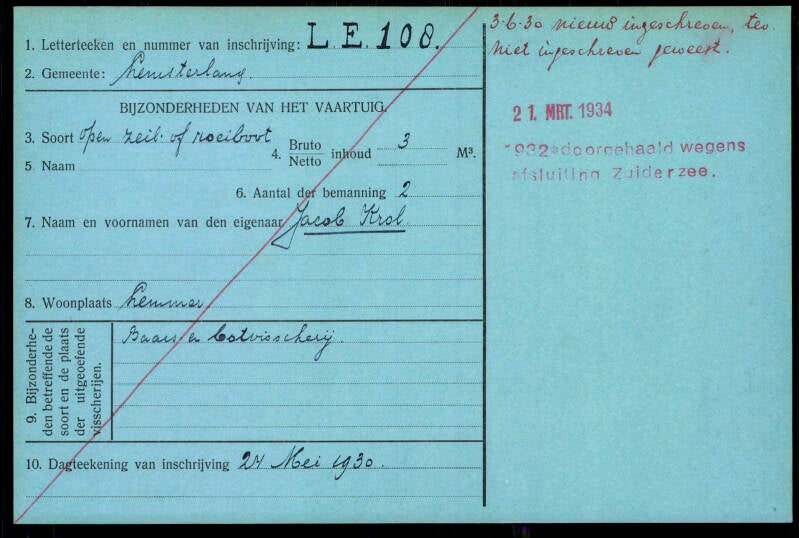 1. Letterteeken en nummer van inschrijving: L.E. 108.
2. Gemeente: Lemsterland.
BIJZONDERHEDEN VAN HET VAARTUIG.
3. Soort open zeil- of roeiboot
4. Bruto Netto inhoud 3 M³.
5 Naam
6. Aantal der bemanning 2
7. Naam en voornamen van den eigenaar Jacob Krol.
8. Woonplaats Lemmer
9. Bijzonderhe-
den betreffende de
soort en de plaats
der uitgeoefende
visscherijen.
Baars en botvisscherij.
10. Dagteekening van inschrijving 24 Mei 1930.
3-6-30 nieuw ingeschreven, tev.
niet ingeschreven geweest.
21. MRT. 1934
1932 doorgehaald wegens
afsluiting Zuiderzee.